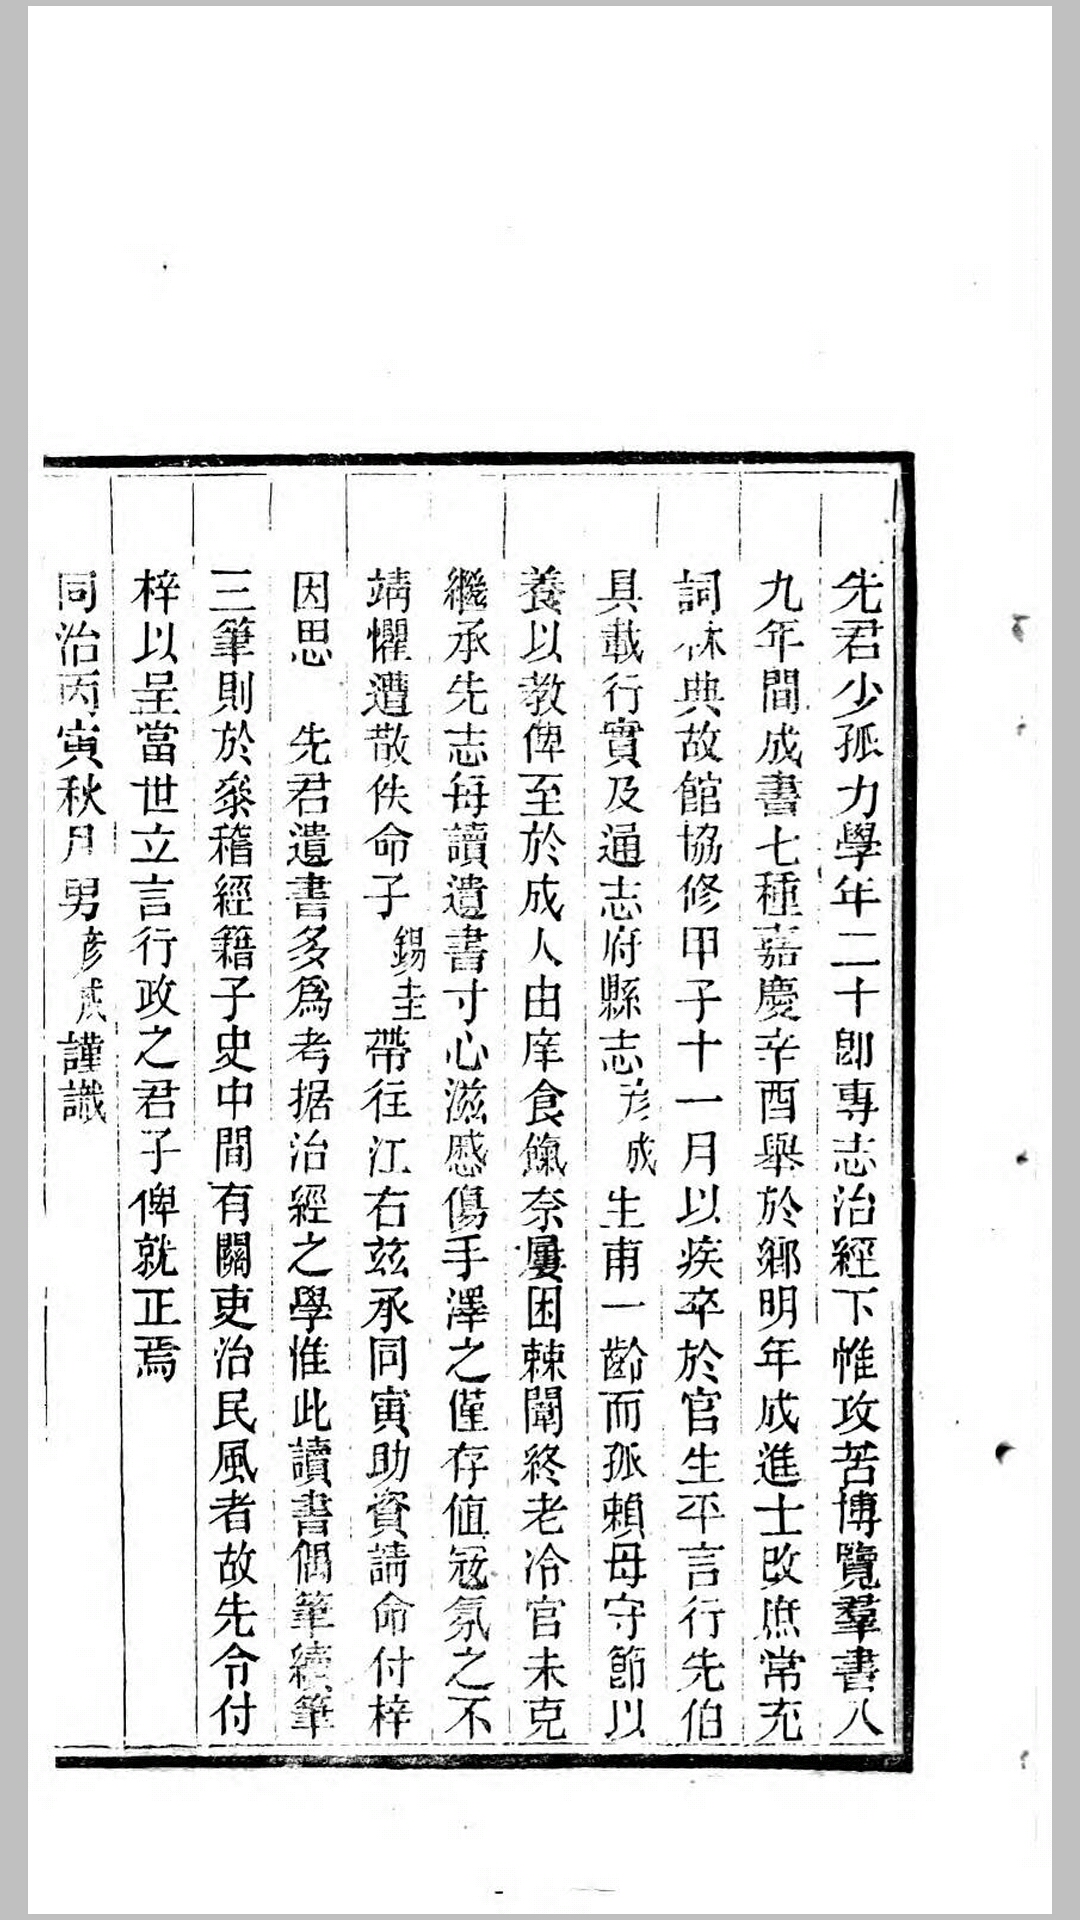 先君少孤力學年二十卽專志治經下帷攻苦博覽羣書八
九年間成書七種嘉慶辛酉舉於鄉明年成進士改庶常充
詞林典故館協修甲子十一月以疾卒於官生平言行先伯
具載行實及通志府縣志彥成生甫一齡而孤賴母守節以
養以教俾至於成人由庠食餼奈屢困棘闈終老冷官未克
繼承先志每讀遺書寸心滋慼傷手澤之僅存値冦氛之不
靖懼遭散佚命子錫圭帶往江右玆承同寅助資請命付梓
因思　先君遺書多爲考据治經之學惟此讀書偶筆續筆
三筆則於叅稽經籍子史中間有關吏治民風者故先令付
梓以呈當世立言行政之君子俾就正焉
同治丙寅秋月男彥成謹識